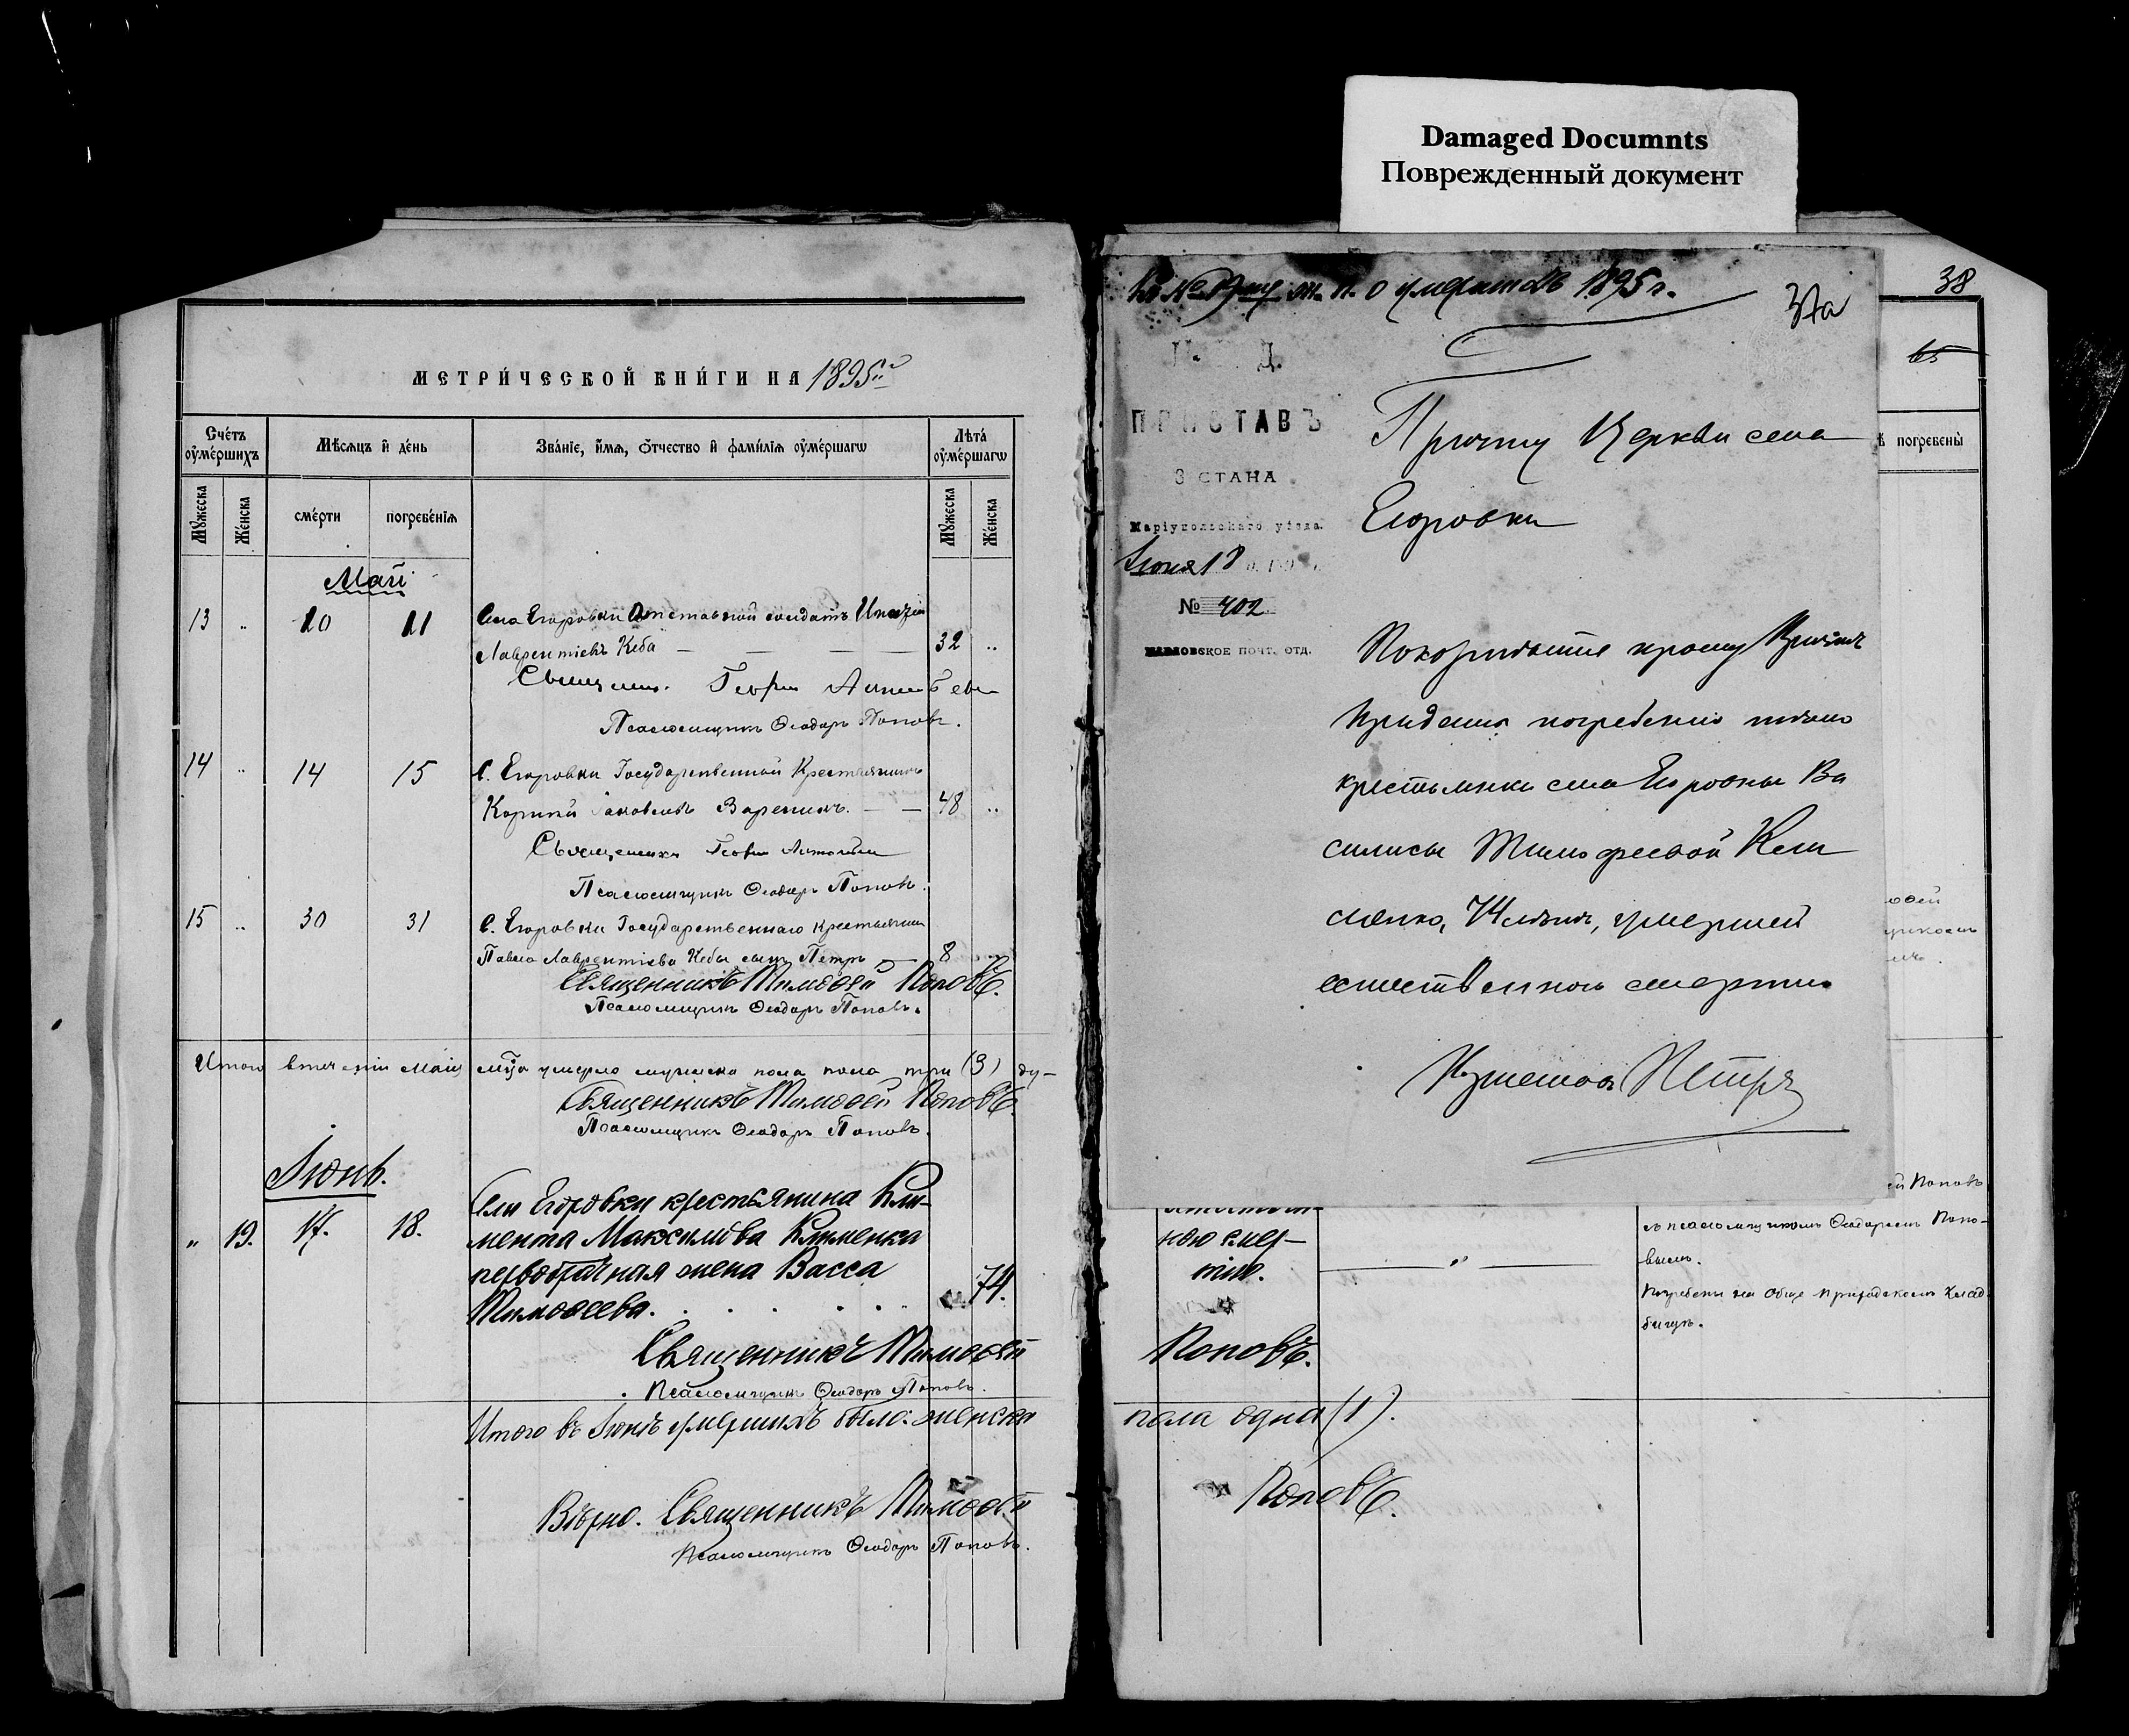 Damaged Documnts
Поврежденный документ
МЕТРИ́ЧЕСКОЙ КНИ́ГИ НА 1895
Сче́тъ ѹме́ршихъ
Мѣсѧцъ и҆ де́нь
Зва́нїе, и҆́мѧ, ѻ҆́тчество и҆ фами́лїѧ ѹме́ршагѡ
Лѣта́ ѹме́ршагѡ
Мꙋжеска
Же́нска
сме́рти
погребе́нїѧ
Мꙋжеска
Же́нска
Май
13 „ 20 21 Села Егоровки Отставной солдатъ
Лаврентіевъ Кеба 32 „
Священ. Георгій
Псаломщикъ Ѳеодоръ Поповъ.
14 „ 14 15 С. Егоровки Государственный Крестьянинъ
Яковлевъ Вареникъ. 48 „
Священникъ Георгій
Псаломщикъ Ѳеодоръ Поповъ.
15 „ 30 31 С. Егоровки Государственнаго крестьянина
Павла Лаврентіева Кебы сынъ Петръ 8
Священникъ Тимоѳей Поповъ.
Псаломщикъ Ѳеодоръ Поповъ.
Итого втеченіи Маія м-ца умерло мужеска пола три (3) ду-
Священникъ Тимоѳей Поповъ.
Псаломщикъ Ѳеодоръ Поповъ.
Іюнь.
Села Егоровки крестьянина Кли-
„ 19. 17. 18. мента Максимова Клименка
первобрачная жена Васса
Тимоѳеева. 74.
Священникъ Тимоѳей
Псаломщикъ Ѳеодоръ Поповъ.
Итого въ Іюнѣ умершихъ было: женска
Вѣрно. Священникъ Тимоѳей
Псаломщикъ Ѳеодоръ Поповъ.
Къ № 19му о умершихъ 1895 г.
37а
38
65
П. Д.
ПРИСТАВЪ
3 СТАНА
Маріупольскаго уѣзда.
Іюня 18
№ 402
ПОЧТ. ОТД.
Причту Церкви села
Егоровки
Покорнѣйше прошу Причтъ
придать погребенію тѣло
крестьянки села Егоровки Ва
силисы Тимофеевой Кли
менко, 74 лѣтъ, умершей
естественною смертью.
погребены
ей Поповъ
ною смер-
тію.
съ псаломщикомъ Ѳеодоромъ Попо-
вымъ.
Погребена на обще приходскомъ клад
бищѣ.
Поповъ.
пола одна (1).
Поповъ.